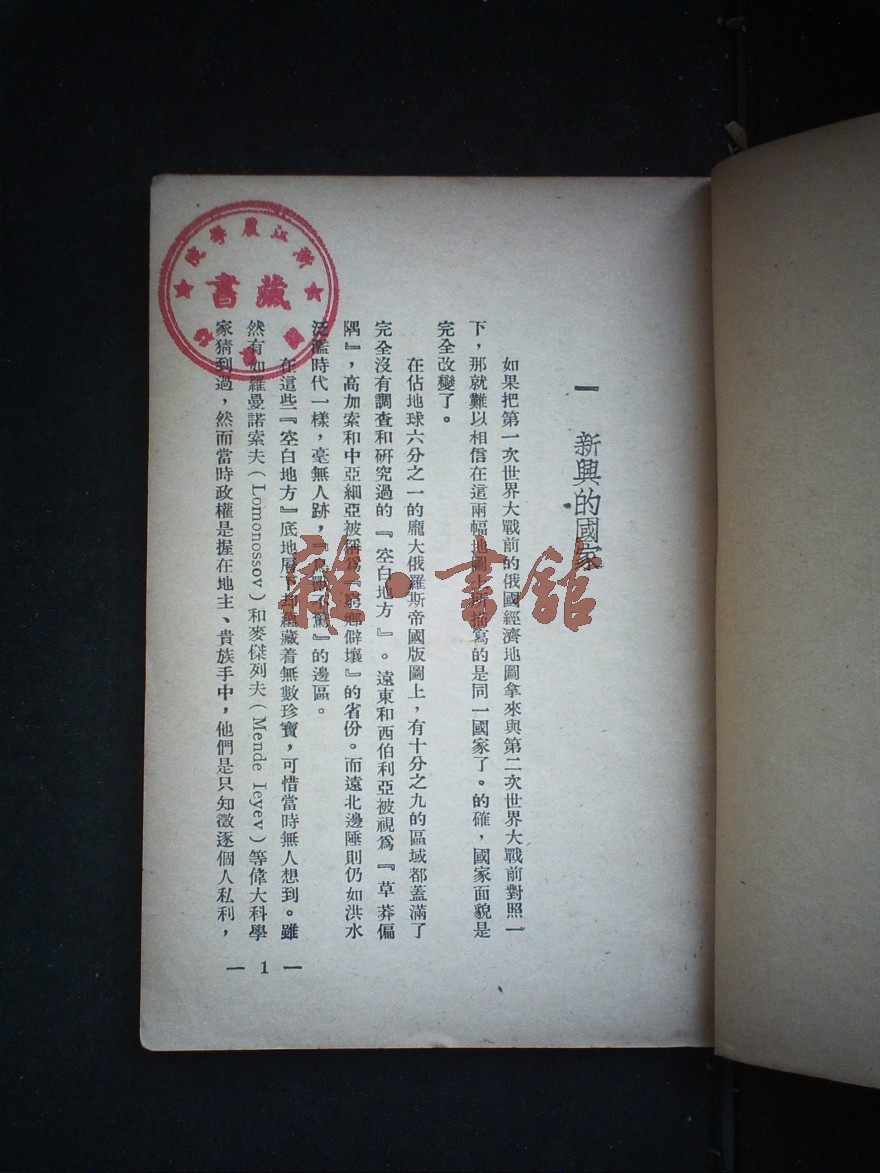 一 新興的國家
如果把第一次世界大戰前的俄國經濟地圖拿來與第二次世界大戰前對照一
下，那就難以相信在這兩幅地圖上所描寫的是同一國家了。的確，國家面貌是
完全改變了。
在佔地球六分之一的龐大俄羅斯帝國版圖上，有十分之九的區域都蓋滿了
完全沒有調查和研究過的『空白地方』。遠東和西伯利亞被視爲『草莽偏
隅』，高加索和中亞細亞被稱爲『窮鄉僻壤』的省份。而遠北邊陲則仍如洪水
泛濫時代一樣，毫無人跡，『不驚』的邊區。
在這些『空白地方』底地層下却蘊藏着無數珍寶，可惜當時無人想到。雖
然有如羅曼諾索夫（Lomonossov）和麥傑列夫（Mende leyev）等偉大科學
家猜到過，然而當時政權是握在地主、貴族手中，他們是只知徵逐個人私利，
— 1 —
浙江農學院
藏書
圖書
雜·書館